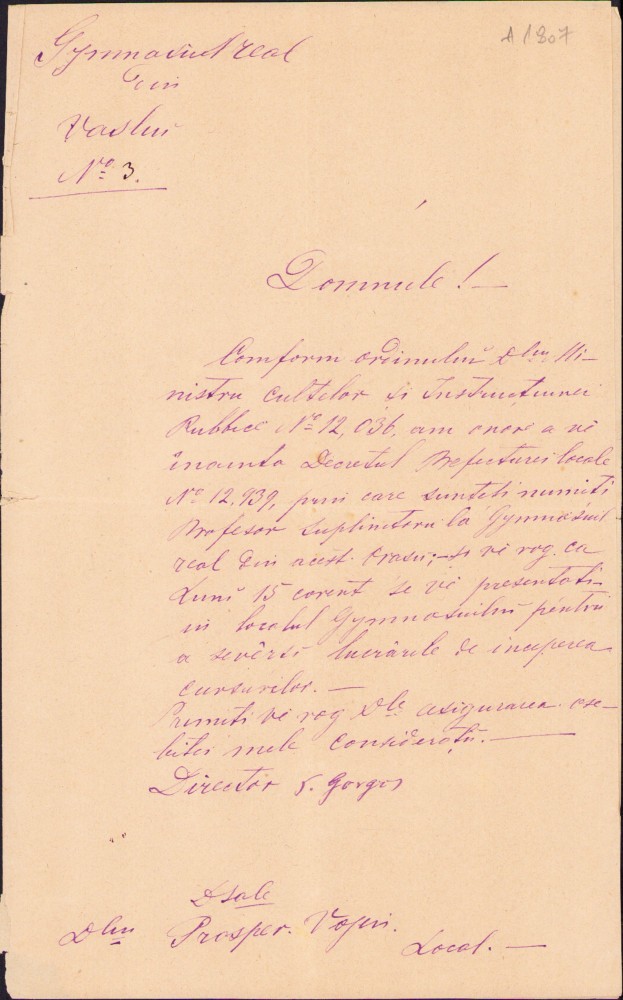 A 1807
Gymnasiul real
din
Vaslui
No 3.
Domnule! —
Conform ordinului Dlui Mi-
nistru cultelor si Instructiunei
Publice No 12,036, am onore a vĕ
înainta Decretul Prefecturei locale
No 12,939, prin care sunteti numiti
Profesor suplinitoru la Gymnasiul
real din acest orasu; — si vĕ rog ca
Luni 15 corent se vĕ presentati
in localul Gymnasiului pentru
a sevêrsi lucrările de inceperea
cursurilor. —
Primiti vĕ rog Dle asigurarea ose-
bitei mele consideratii. —
Director S. Gorgos
Dsale
Dlui Prosper.
Local. —